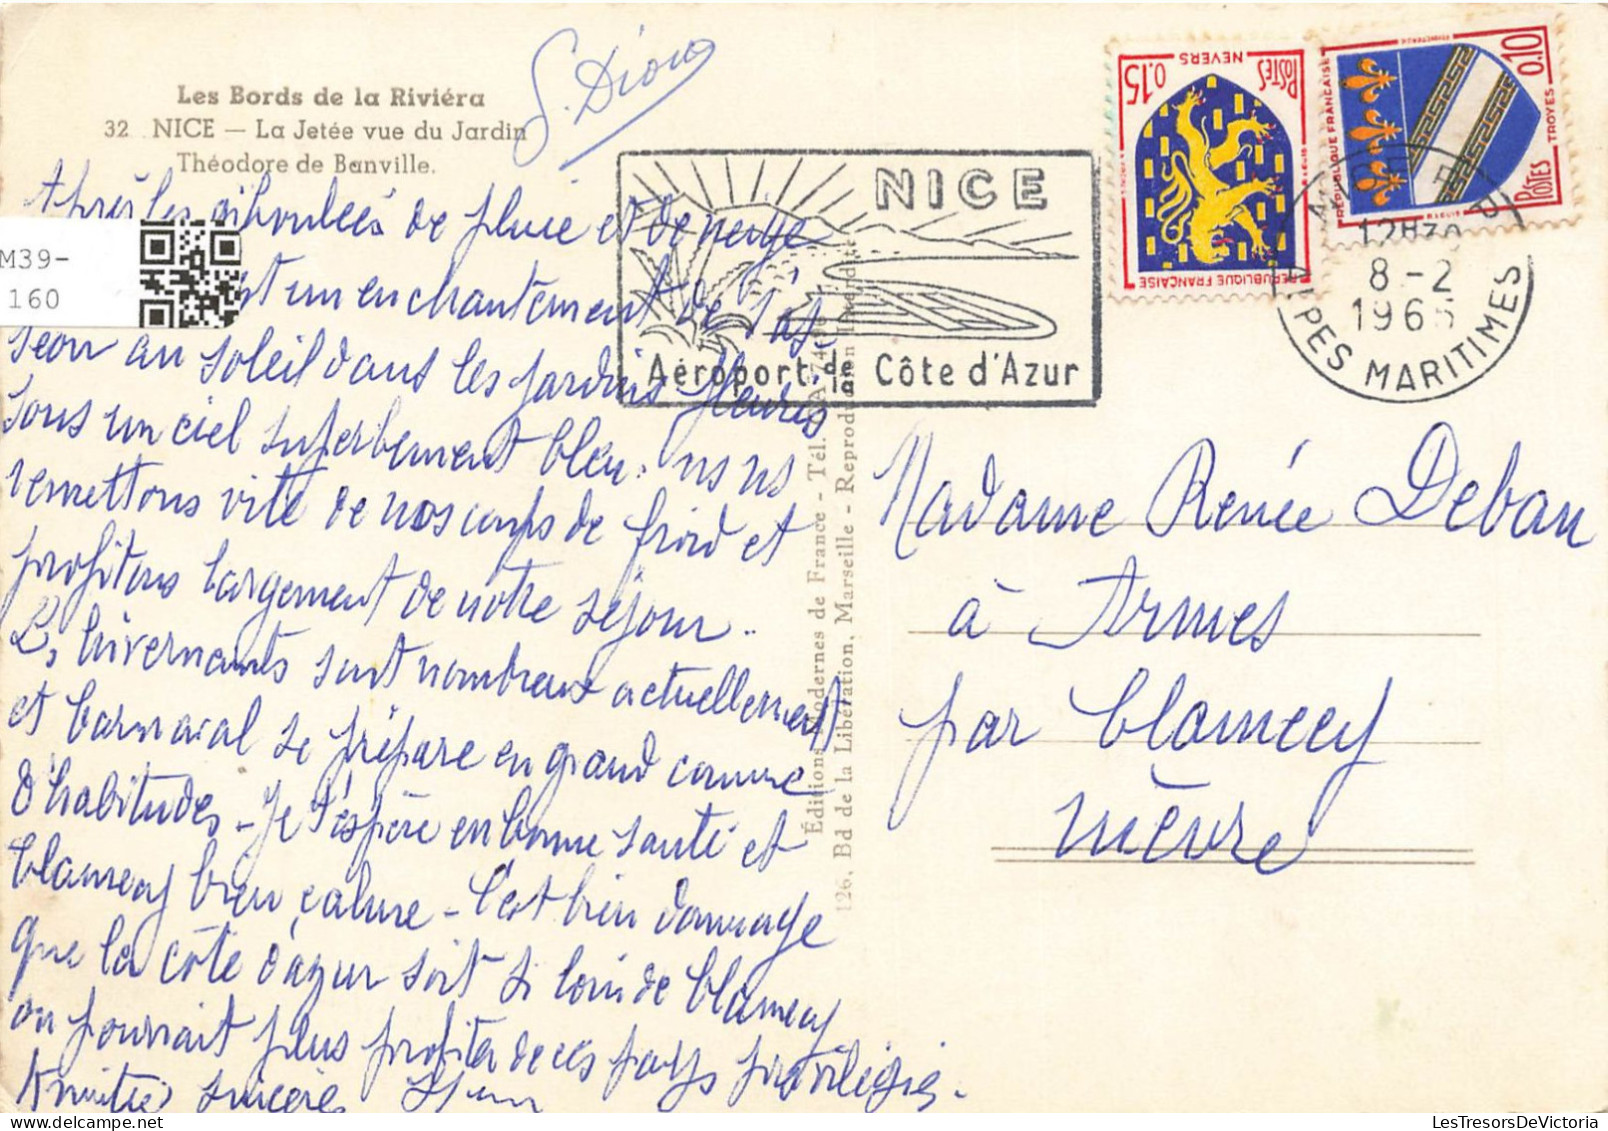 Les Bords de la Riviéra
32 NICE — La Jetée vue du Jardin
Théodore de Banville.
S. Dion
M39-
160
Après les giboulées de pluie et de neige
est un enchantement de s'as-
seoir au soleil dans les jardins fleuris
sous un ciel superbement bleu. ns ns
remettons vite de nos coups de froid et
profitons largement de notre séjour..
Ls hivernants sont nombreux actuellement
et Carnaval se prépare en grand comme
d'habitudes - Je t'espère en bonne santé et
Clamecy bien calme - C'est bien dommage
que la côte d'azur soit si loin de Clamecy
on pourrait plus profiter de ces pays privilégiés.
Amitiés sincères
Éditions Modernes de France - Tél.
126, Bd de la Libération, Marseille - Reproduction Interdite
NICE
Aéroport de la Côte d'Azur
0.15
POSTES
NEVERS
REPUBLIQUE FRANCAISE
0.10
POSTES
TROYES
REPUBLIQUE FRANCAISE
12H30
8-2
1965
ALPES MARITIMES
Madame Renée Deban
à Armes
par Clamecy
Nièvre
LesTresorsDeVictoria.com